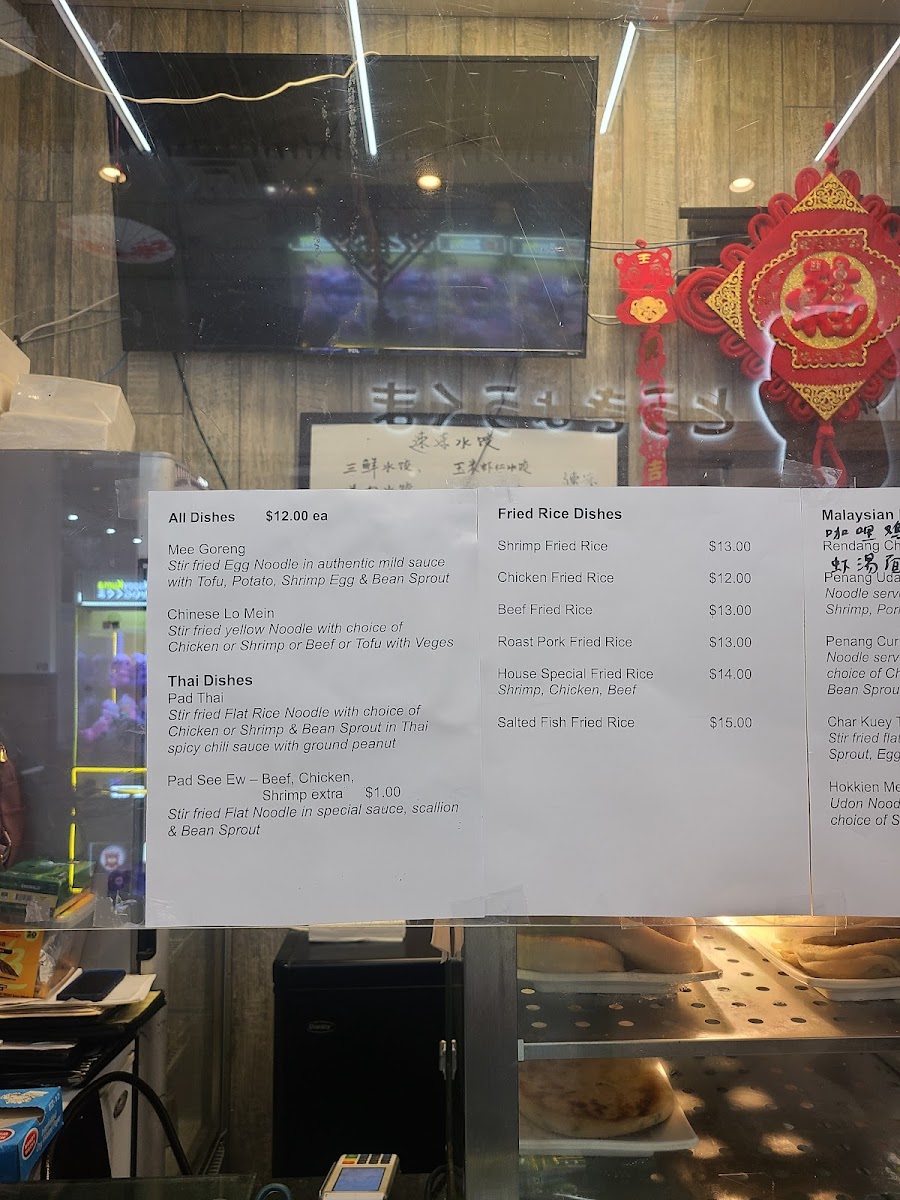 とうきょうくま
速冻水饺
三鲜水饺、 玉米虾仁水饺
吉
福
All Dishes $12.00 ea
Mee Goreng
Stir fried Egg Noodle in authentic mild sauce
with Tofu, Potato, Shrimp Egg & Bean Sprout
Chinese Lo Mein
Stir fried yellow Noodle with choice of
Chicken or Shrimp or Beef or Tofu with Veges
Thai Dishes
Pad Thai
Stir fried Flat Rice Noodle with choice of
Chicken or Shrimp & Bean Sprout in Thai
spicy chili sauce with ground peanut
Pad See Ew – Beef, Chicken,
Shrimp extra $1.00
Stir fried Flat Noodle in special sauce, scallion
& Bean Sprout
Fried Rice Dishes
Shrimp Fried Rice $13.00
Chicken Fried Rice $12.00
Beef Fried Rice $13.00
Roast Pork Fried Rice $13.00
House Special Fried Rice $14.00
Shrimp, Chicken, Beef
Salted Fish Fried Rice $15.00
Malaysian
咖哩鸡
Rendang Ch
虾汤面
Penang Uda
Noodle serv
Shrimp, Por
Penang Cur
Noodle serv
choice of Ch
Bean Sprou
Char Kuey T
Stir fried flat
Sprout, Egg
Hokkien Me
Udon Nood
choice of S